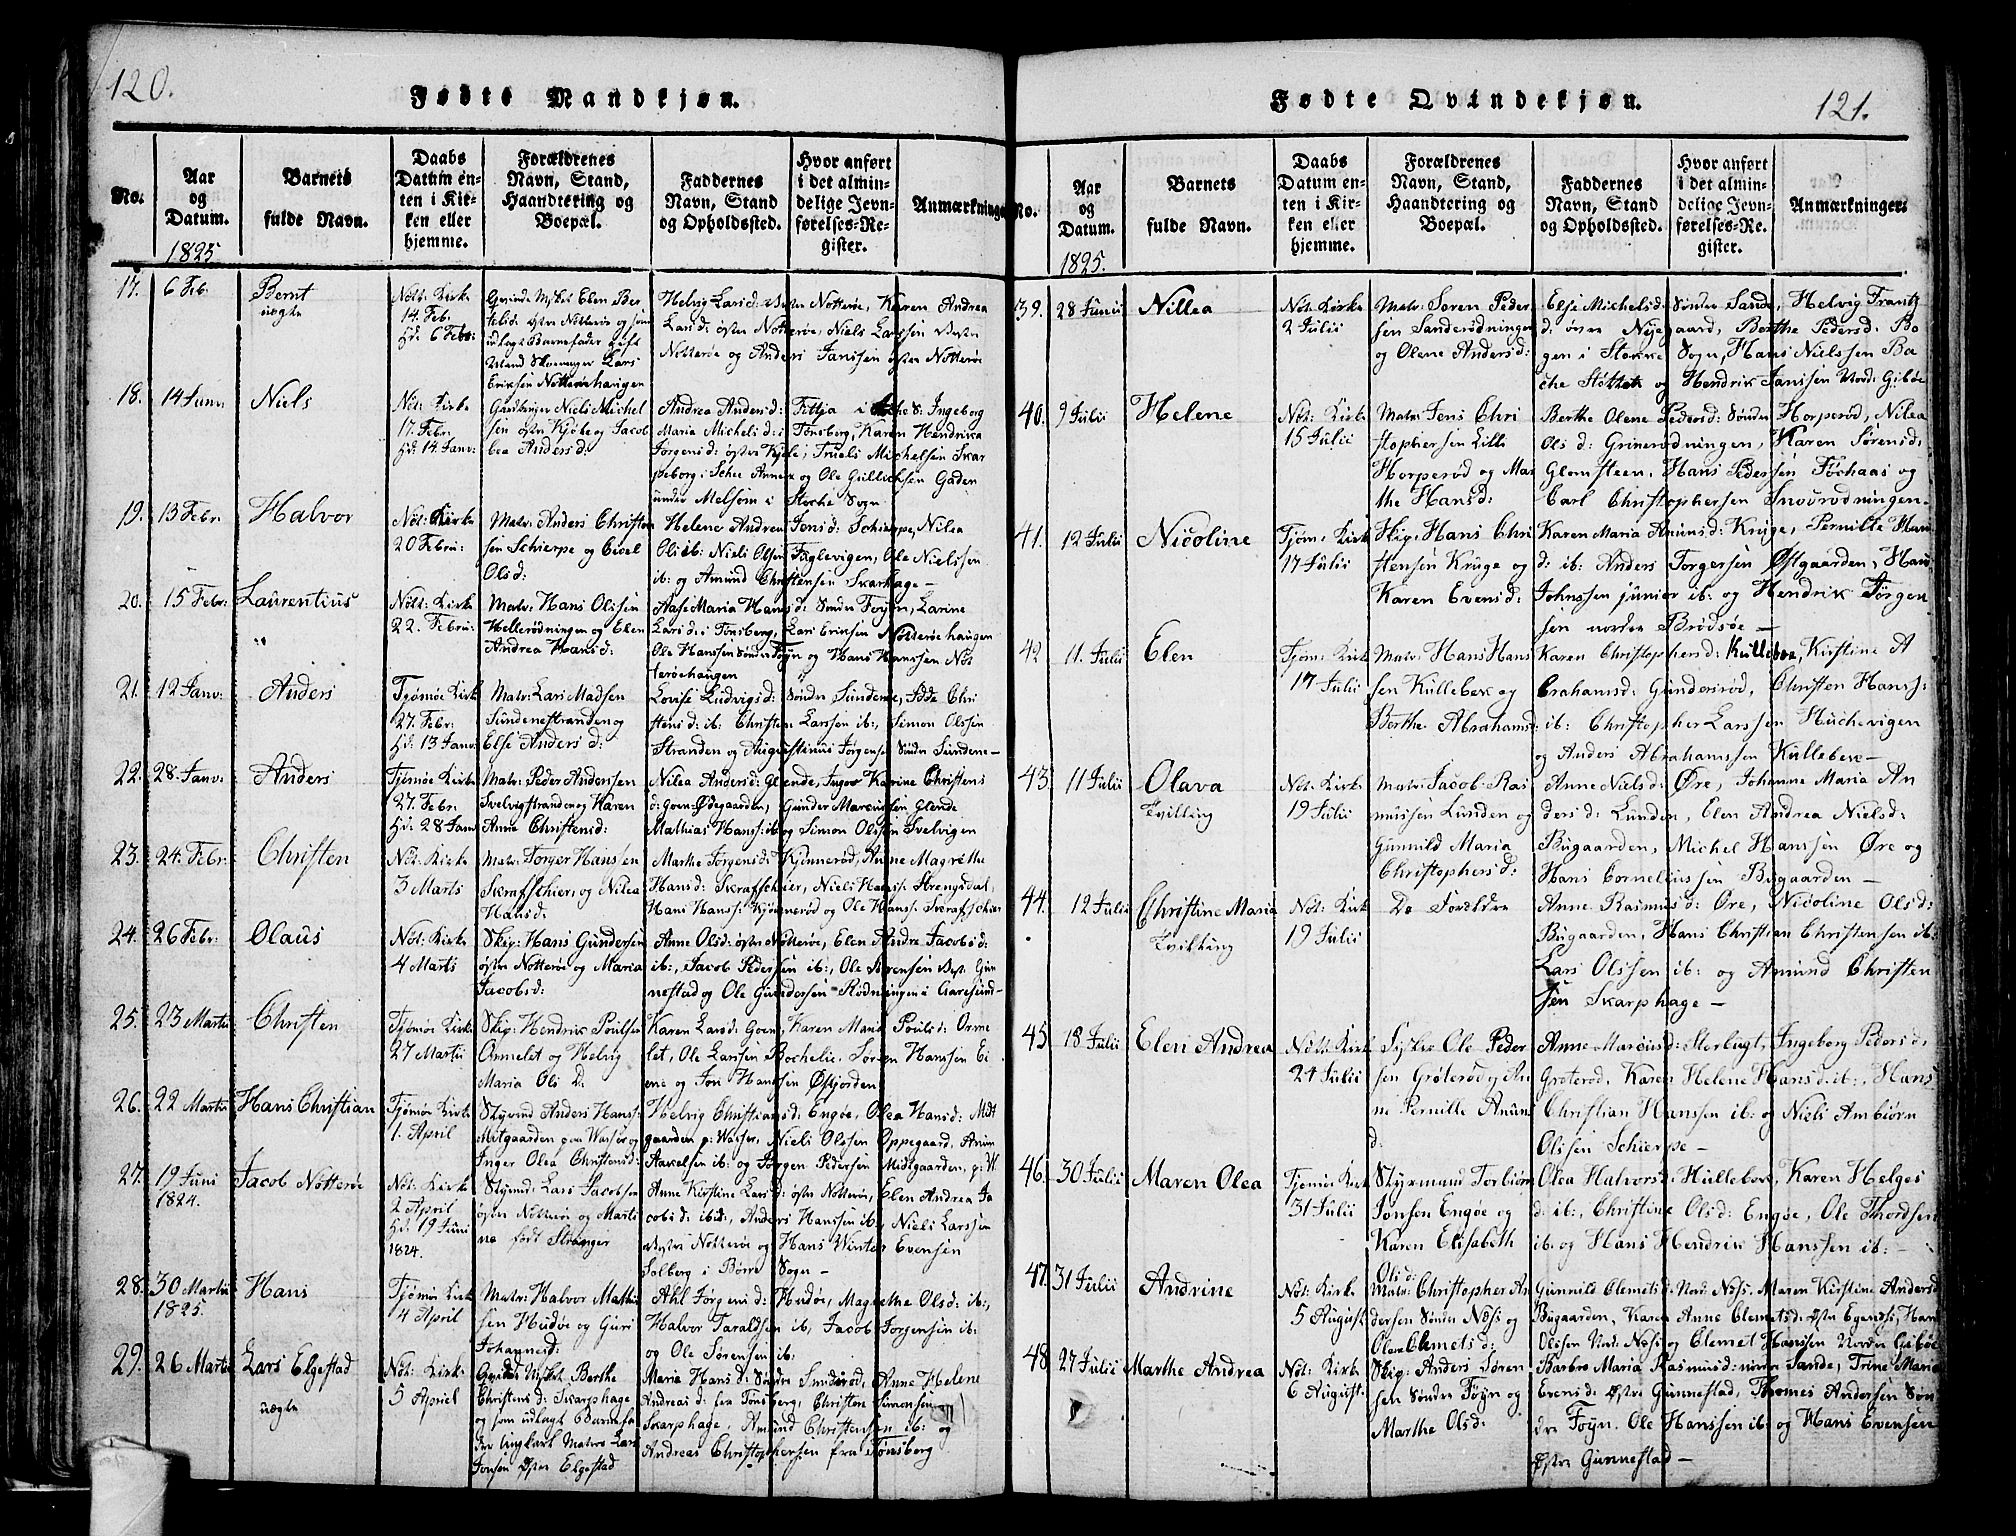 120.
Fødte Mandkjøn.
No.
Aar og Datum.
1825
Barnets fulde Navn.
Daabs Datum enten i Kirken eller hjemme.
Forældrenes Navn, Stand, Haandtering og Boepæl.
Faddernes Navn, Stand og Opholdssted.
Hvor anført i det almindelige Jevnførelses-Register.
Anmærkninger
17.
6 Feb.
Bernt
uægte
Nøt: Kirke
14. Feb.
Hd: 6 Febr:
udlagt Barnefader
Eriksen Nøtterøehaugen
Helvig Larsd: Vestre Nøtterøe, Karen Andrea
Larsd: østre Nøtterøe, Niels Larssen Vestre
Nøtterøe og Anders Janssen østre Nøtterøe
18.
14 Janv:
Niels
Nøt: Kirke
17. Febr.
Hd: 14. Janv:
Gaardbruger Niels Michel
sen østre Kjøle og Jacob
bea Andersd:
Maria Michelsd: i Tønsberg, Karen Hendrika
Jørgensd: østre Kjøle, Truels Michelsen Skar
peborg i Schee Annex og Ole Gullichsen Gaden
under Melsom i Stoche Sogn
19.
13 Febr.
Halvor
Nøt: Kirke
20 Febru:
Matr: Anders Christen
sen Schierpe og Sicel
Olsd:
Helene Andrea Jonsd: Schierpe, Nilea
Olsd: ib: Niels Olsen Fuglevigen, Ole Nielssen
ib: og Amund Christensen Skarphage —
20.
15 Febr:
Laurentius
Nøt: Kirke
22. Febru:
Matr: Hans Olssen
Hellerødningen og Elen
Andrea Hansd:
Aase Maria Hansd: Søndre Foyn, Larine
Larsd: i Tønsberg, Lars Ericsen Nøtterøehaugen
Ole Hanssen Søndre Foyn og Hans Hanssen Nøt
terøehaugen
21.
12 Janv:
Anders
Tjømøe Kirke
27. Febr:
Hd: 13 Janv:
Matr: Lars Madsen
Sundenestranden og
Else Anders d:
Lovise Ludvigsd: Søndre Sundene, Søde Chri
stensd: ib: Christen Larssen ib:, Simon Olssen
Stranden og Augustinus Jørgensen Søndre Sundene —
22.
28. Janv:
Anders
Tjømøe Kirke
27. Febr:
Hd: 28 Janv
Matr: Peder Andersen
Svelvigstranden og Karen
Anne Christensd:
Nilea Andersd: Glende, Inger Karine Christens
d: Goen: Ødegaarden, Gunder Marcussen Glende
Mathias Hanss: ib: og Simon Olssen Svelvigen
23.
24. Febr:
Christen
Nøt: Kirke
3 Marts
Matr: Torger Hanssen
Skrafschier, og Nilea
Hansd:
Marthe Jørgensd: Kjønnerød, Anne Magrethe
Hansd: Skrafschier, Niels Hanss: Strengsdal,
Hans Hanss: Kjønnerød og Ole Hanss: Skrafschier
24.
26 Febr:
Olaus
Nøt: Kirke
4 Marts
Skip: Hans Gundersen
østre Nøtterøe og Maria
Jacobsd:
Anne Olsd: østre Nøtterøe, Elen Andre Jacobsd:
ib:, Jacob Pedersen ib:, Ole Sørensen Vest: Gun
nestad og Ole Gundersen Rødningen i Aaresund —
25.
23 Martii
Christen
Tjømøe Kirke
27 Martii
Skip: Hendrik Poulsen
Ormelet og Helvig
Maria Ols D:
Karen Larsd: Goen, Karen Maria Poulsd: Orme
let, Ole Larssen Bochelie, Søren Hanssen Ei
ene og Jon Hanssen Østjorden
26.
22 Martii
Hans Christian
Tjømøe Kirke
1. April
Styrmd Anders Hanss:
Mitgaarden paa Vasser og
Inger Olea Christensd:
Helvig Christiansd: Engøe, Olea Hansd: Midt
gaarden p: Vasser, Niels Olssen Oppegaard, Anun
Aaxelsen ib: og Jørgen Pedersen Midtgaarden, p: V.
27.
19 Juni
1824.
Jacob Nøtterøe
Nøt: Kirke
2 April
Hd: 19 Juni
1824.
Styrmd: Lars Jacobsen
østre Nøtterøe og Marti
ne født Stranger
Anne Kirstine Larsd: østre Nøtterøe, Elen Andrea Ja
cobsd: ibid:, Anders Hanssen ib:, Niels Larssen
Vestre Nøtterøe og Hans Winter Evensen
Solberg i Børre Sogn —
28.
30 Martii
1825.
Hans
Tjømøe Kirke
4 April
Matr: Halvor Mathi
sen Hudøe og Guri
Johannesd:
Ahl Jørgensd: Hudøe, Magrethe Olsd: ib:,
Halvor Taraldsen ib, Jacob Jørgensen ib:
og Ole Sørensen ib:
29.
26 Martii
Lars Elgestad
uægte
Nøt: Kirke
5 Apriel
Berthe
Christensd: Skarphage
og som udlagt Barnefa
der Ungkarl Matros Lars
Jonsen østre Elgestad
Maria Hansd: Søndre Smidsrød, Anne Helene
Andreas d: fra Tønsberg, Christen Simonsen
Skarphage, Amund Christensen ib: og
Andreas Christophersen fra Tønsberg
121.
Fødte Qvindekjøn.
No.
Aar og Datum.
1825.
Barnets fulde Navn.
Daabs Datum enten i Kirken eller hjemme.
Forældrenes Navn, Stand, Haandtering og Boepæl.
Faddernes Navn, Stand og Opholdssted.
Hvor anført i det almindelige Jevnførelses-Register.
Anmærkninger.
39.
28 Junii
Nillea
Nøt: Kirke
2 Julii
Matr: Søren Peder
sen Sanderødningen
og Olene Andersd:
Else Michelsd: Søndre Sande, Helvig Frantz
d: øvre Nøjegaard, Berthe Pedersd: Bo
gen i Stokke Sogn, Hans Nielssen Bo
og Hendrik Janssen Nord: Gibøe
40.
9 Julii
Helene
Nøt: Kirk
15 Julii
Matr: Jens Chri
stophersen Lille
Horperød og Mar
the Hansd:
Berthe Olene Pedersd: Søndre Horperød, Nilea
Ols d: Grimerødningen, Karen Sørensd:
Glomsteen, Hans Pedersen Føchaas og
Carl Christophersen Snoerødningen.
41.
12 Julii
Nicoline
Tjøm: Kirk
17 Julii
Skip: Hans Chri
stensen Kruge og
Karen Evensd:
Karen Maria Anunsd: Kruge, Pernille Han
d: ib: Anders Torgersen Østgaarden, Hans
Johnssen junior ib: og Hendrik Jørgen
sen nordre Brødsøe —
42
11. Julii
Elen
Tjøm: Kirk
17 Julii
Matr: Hans Hans
sen Kullebek og
Berthe Abrahamsd:
Karen Christophersd: Kullebek, Kirstine A
brahamsd: Gundersrød, Christen Hanss:
ib: Christopher Larssen Huchevigen
og Anders Abrahamssen Kullebek —
43.
11 Julii
Olava
Tvilling
Nøt: Kirk
19 Julii
Matr: Jacob Ras
mussen Lunden og
Gunnild Maria
Christophersd:
Anne Nielsd: Øre, Johanne Maria An
dersd: Lunden, Elen Andrea Nielsd:
Bugaarden, Michel Hanssen Øre og
Hans Corneliussen Bugaarden —
44.
12 Julii
Christine Maria
Tvilling
Nøt: Kirk
19 Julii
Do Foreldre
Anne Rasmusd: Øre, Nicoline Olsd:
Bugaarden, Hans Christian Christensen ib:
Lars Olssen ib: og Amund Christen
sen Skarphage —
45
18 Julii
Elen Andrea
Nøt: Kirk
24 Julii
Ole Peder
sen Grøterød og An
ne Pernille Anun
d:
Anne Marcusd: Storlugt, Ingeborg Pedersd:
Grøterød, Karen Helene Hansd: ib:, Hans
Christian Hanssen ib: og Niels Ambiørn
Olssen Schierpe —
46.
30 Julii
Maren Olea
Tjømøe Kirk
31 Julii
Styrmand Torbiørn
Jonsen Engøe og
Karen Elisabeth
Olsd:
Olea Halvorsd: Kullebek, Karen Helges
d: ib:, Christine Olsd: Engøe, Ole Thordsen
ib: og Hans Hendrik Hanssen ib: —
47.
31 Julii
Andrine
Nøt: Kirk
5 August
Matr: Christopher An
dersen Søndre Nøsi og
Olea Clemetsd:
Gunnild Clemetsd: Nord: Nøsi, Maren Kirstine Andersd
Bugaarden, Karen Anne Clemetsd: østre Egenæs, Hans
Olssen Nord: Nøsi og Clemet Hanssen Norden Gibøe
48
27 Julii
Marthe Andrea
Nøt: Kirk
6 August:
Skip: Anders Søren
sen Søndre Føyn og
Marthe Olsd:
Barbro Maria Rasmusd: nordre Sande, Trine Maria
Evensd: østre Gunnestad, Thomes Andersen Søn
dre Foyn. Ole Hanssen ib: og Hans Evensen
østre Gunnestad —